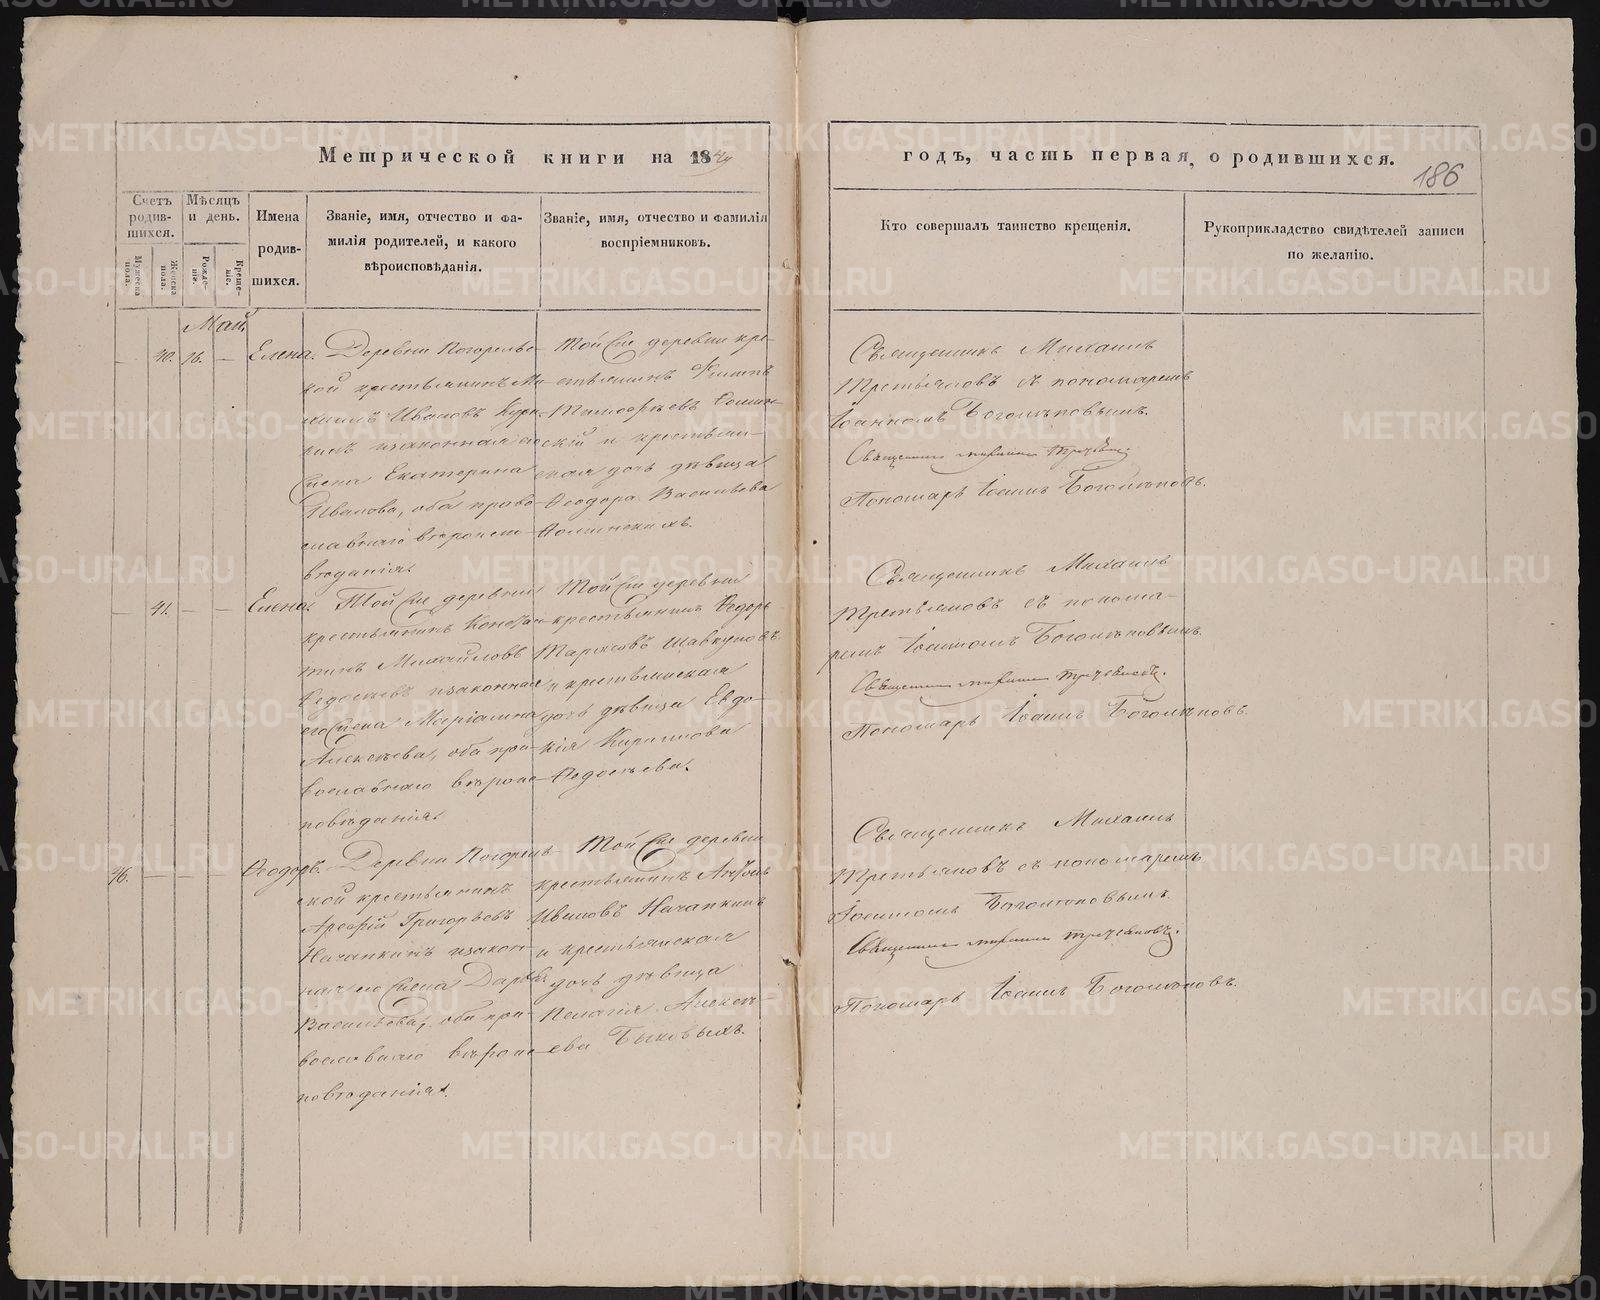 Метрической книги на 18
годъ, часть первая, о родившихся.
186
Счетъ родив-шихся.
Мужеска пола.
Женска пола.
Мѣсяцъ и день.
Рожде-нiе.
Креще-нiе.
Имена
родив-
шихся.
Званiе, имя, отчество и фа-
милiя родителей, и какого
вѣроисповѣданiя.
Званiе, имя, отчество и фамилiя
воспрiемниковъ.
Кто совершалъ таинство крещенiя.
Рукоприкладство свидѣтелей записи
по желанiю.
Май
40.
Елена.
Деревни
кой крестьянинъ
Ивановъ
жена Екатерина
Иванова, оба право-
славнаго вѣроиспо-
вѣданiя.
Той же деревни кре-
стьянинъ Филипъ
Тимофѣевъ
скiй и крестьян-
ская дочь дѣвица
Феодора Васильева
Священникъ Михаилъ
Третьяковъ съ пономаремъ
Iоанномъ Боголѣповымъ.
Священникъ Михаилъ Третьяковъ.
Пономарь Iоаннъ Боголѣповъ.
41.
Елена.
Той же деревни
крестьянинъ Констан-
тинъ Михайловъ
Федосѣевъ и законная
его жена Марiамна
Алексѣева, оба пра-
вославнаго вѣроис-
повѣданiя.
Той же деревни
крестьянинъ Федоръ
Тарасовъ Шавкуновъ
и крестьянская
дочь дѣвица Евдо-
кiя Кирилова
Федосѣева.
Священникъ Михаилъ
Третьяковъ съ понома-
ремъ Iоанномъ Боголѣповымъ.
Священникъ Михаилъ Третьяковъ.
Пономарь Iоаннъ Боголѣповъ.
46.
Феодоръ.
Деревни
ской крестьянинъ
Арефiй Григорьевъ
Начапкинъ и закон-
ная его жена Дарья
Васильева, оба пра-
вославнаго вѣроис-
повѣданiя.
Той же деревни
крестьянинъ
Ивановъ Начапкинъ
и крестьянская
дочь дѣвица
Пелагiя Алексѣ-
ева Быковыхъ.
Священникъ Михаилъ
Третьяковъ съ пономаремъ
Iоанномъ Боголѣповымъ.
Священникъ Михаилъ Третьяковъ.
Пономарь Iоаннъ Боголѣповъ.
METRIKI.GASO-URAL.RU